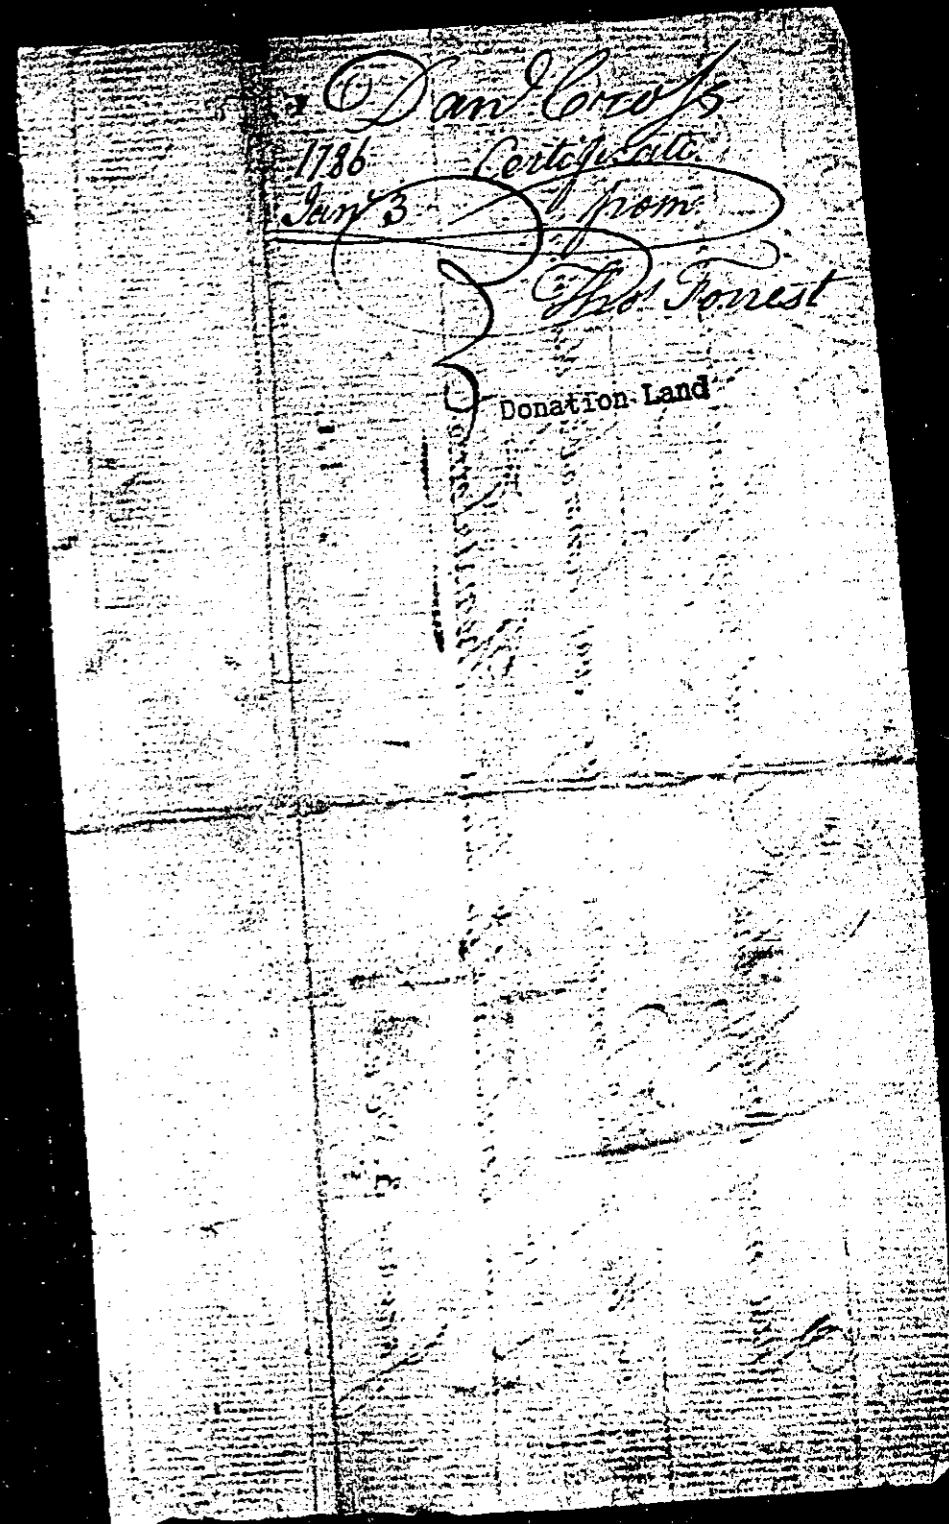 Danl Cross
1786 Certificate
Jany 3 from
Thos Forrest
Donation Land